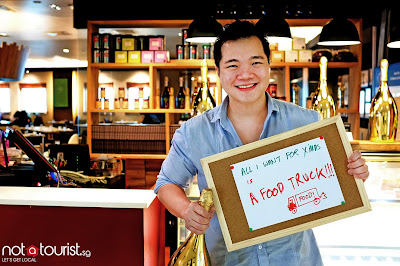 ALL I WANT FOR X'MAS
IS
A FOOD TRUCK!!!
FOOD!
notatourist.sg
LET'S GET LOCAL